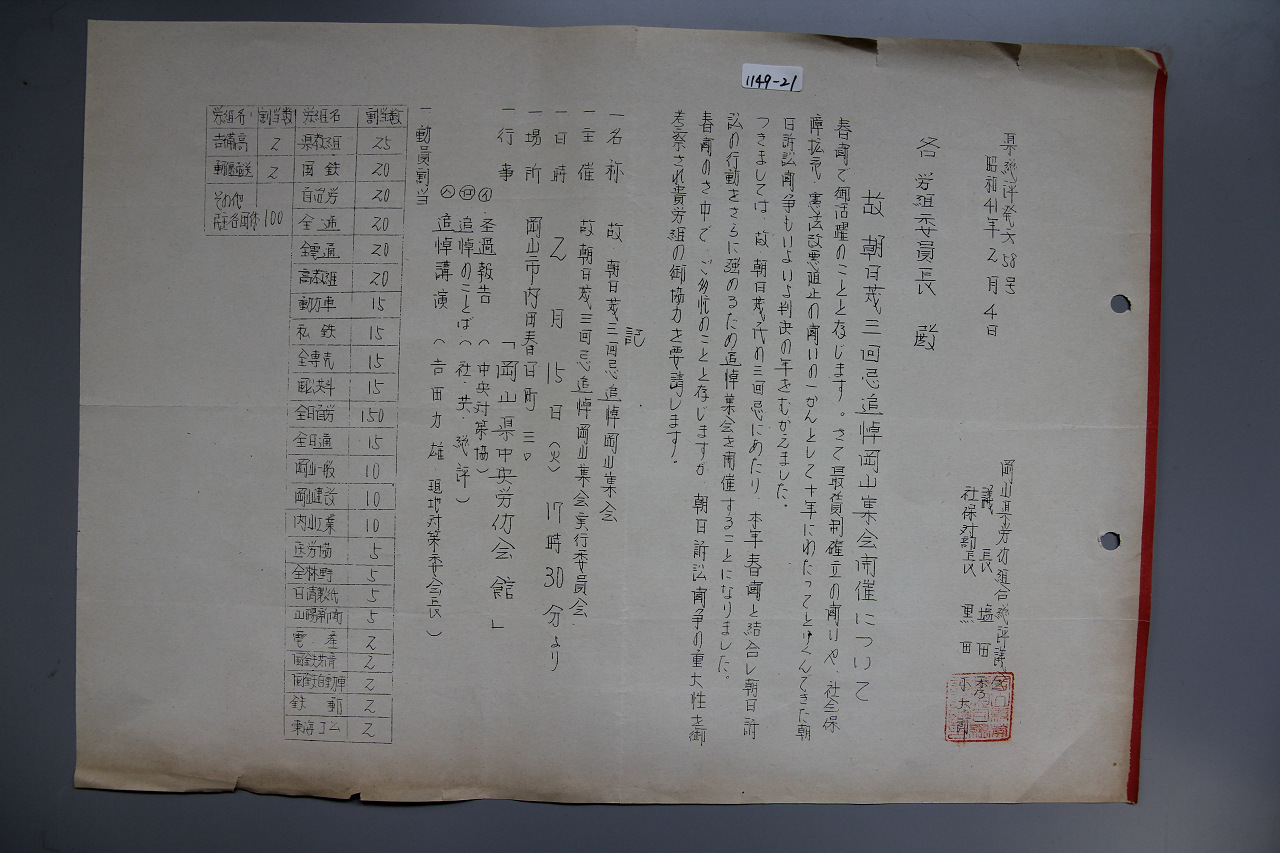 1149-21
県総評発才58号
昭和41年2月4日
岡山県労仂組合総評議会
議長 塩田
社保対部長 黒田
各労組委員長 殿
故 朝日茂三回忌追悼岡山集会開催について
春斗で御活躍のことと存じます。さて最賃制確立の斗いや、社会保
障拡充、憲法改悪阻止の斗いの一かんとして十年にわたってとりくんできた朝
日訴訟斗争もいよいよ判決の年をむかえました。
つきましては、故 朝日茂氏の三回忌にあたり、本年春斗と結合し朝日訴
訟の行動をさらに強めるため追悼集会を開催することになりました。
春斗のさ中で、ご多忙のことと存じますが、朝日訴訟斗争の重大性を御
考察され貴労組の御協力を要請します。
記
一名称 故・朝日茂三回忌追悼岡山集会
一主催 故・朝日茂三回忌追悼岡山集会実行委員会
一日時 2月15日(火)17時30分より
一場所 岡山市内田春日町三ロ
「岡山県中央労仂会館」
一行事 ㋑・圣過報告(中央対策協)
㋺ 追悼のことば(社・共・総評)
㋩ 追悼講演(吉田力雄 現地対策委会長)
一動員割当
労組名 割当数
県教組 25
国鉄 20
自治労 20
全逓 20
全電通 20
高教組 20
動力車 15
私鉄 15
全専売 15
15
全日自労 150
全日通 15
岡山一般 10
岡山建設 10
内山工業 10
医労協 5
全林野 5
日清製紙 5
山陽新聞 5
電産 2
2
国鉄自動車 2
鉄動 2
東海ゴム 2
労組名 割当数
吉備高 2
2
その他
民主各団体 100